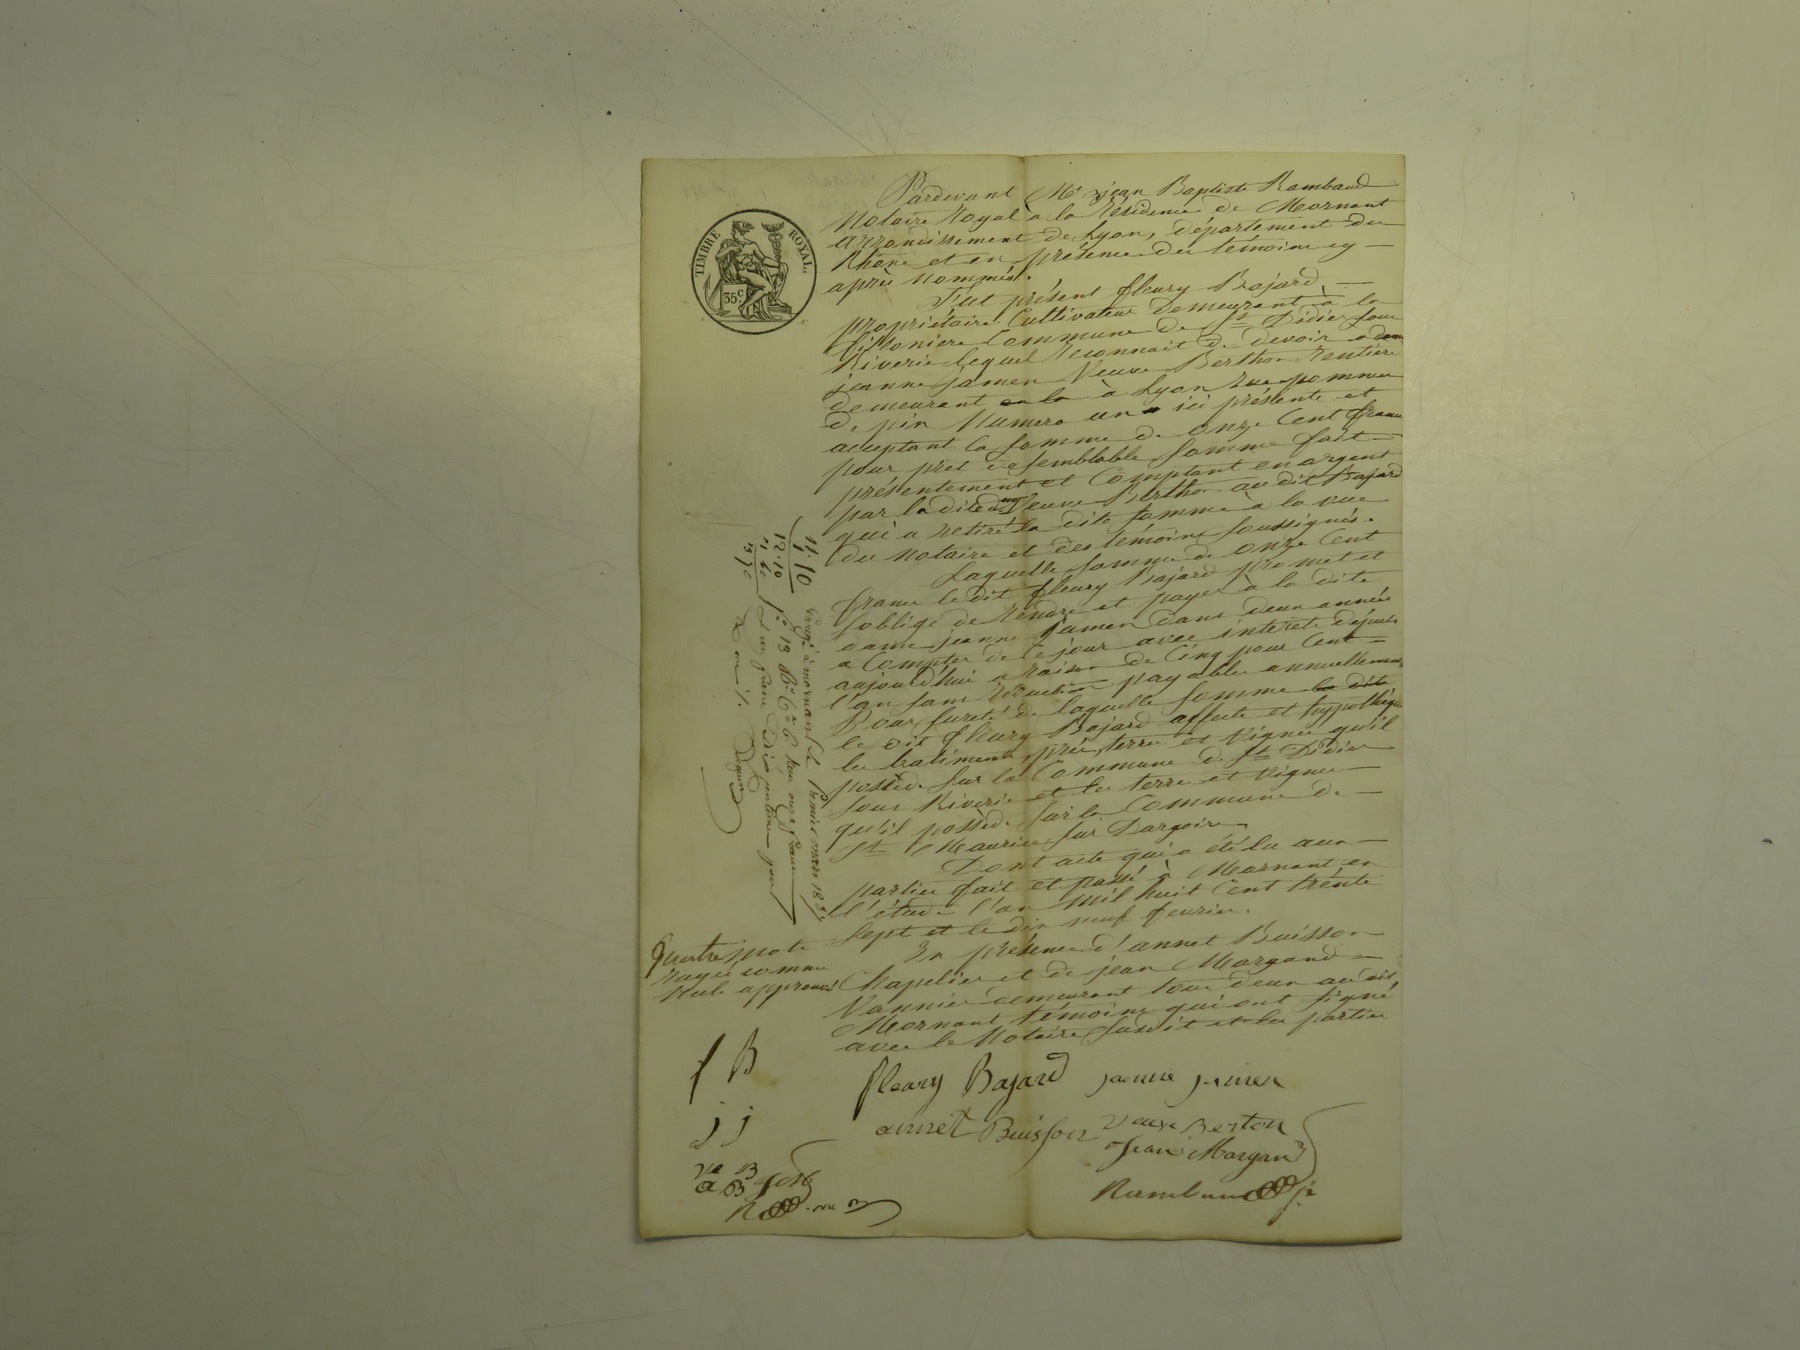 Pardevant Me jean Baptiste Rambaud
Notaire Royal à la Résidence de Mornant
arrondissement de Lyon, département du
Rhône et en présence des témoins cy
après nommés.
TIMBRE ROYAL.
35c
Fut présent fleury Bajard,
propriétaire Cultivateur demeurant à la
Commune de St Didier sous
Riverie lequel Reconnait de devoir a dame
jeanne jamen Veuve Berthon rentière
demeurant à Lyon rue pomme
de pin Numero un ici présente et
acceptant la somme de onze Cent francs
pour pret de semblable somme fait
présentement et Comptant en argent
par la dite Veuve Berthon au dit Bajard
qui a retiré la dite somme à la vue
du notaire et des témoins soussignés.
Laquelle somme de onze Cent
francs le dit fleury Bajard promet et
s'oblige de rendre et payer à la dite
dame jeanne jamen dans deux années
a Compter de ce jour avec intérêts depuis
aujourd'hui a raison de Cinq pour Cent
l'an sans réduction payable annuellement
Pour sureté de laquelle somme la dite
le dit fleury Bajard affecte et hypothèque
les batiments, prés, terres et Vignes qu'il
possède sur la Commune de St Didier
sous Riverie et les terres et Vignes
qu'il possède sur la Commune de
St Maurice sur Dargoire
Dont acte qui a été lu aux
parties fait et passé à Mornant en
l'étude l'an mil huit Cent trente
sept et le dix neuf fevrier.
En présence d'annet Buisson
Chapelier et de jean Margand
Vannier demeurant tous deux au dit
Mornant témoins qui ont signé
avec le Notaire susdit et les parties
fleury Bajard jeanne jamen
annet Buisson Veuve Berton
Jean Margand
Rambaud
11.10
1
12.10
à mornant le Premier mars 1837
fo 13 Ro Ce 6 onze francs
un franc dix centimes pour
Quatre mots
rayés comme
nuls approuvés
f B
j j
ve B
a B